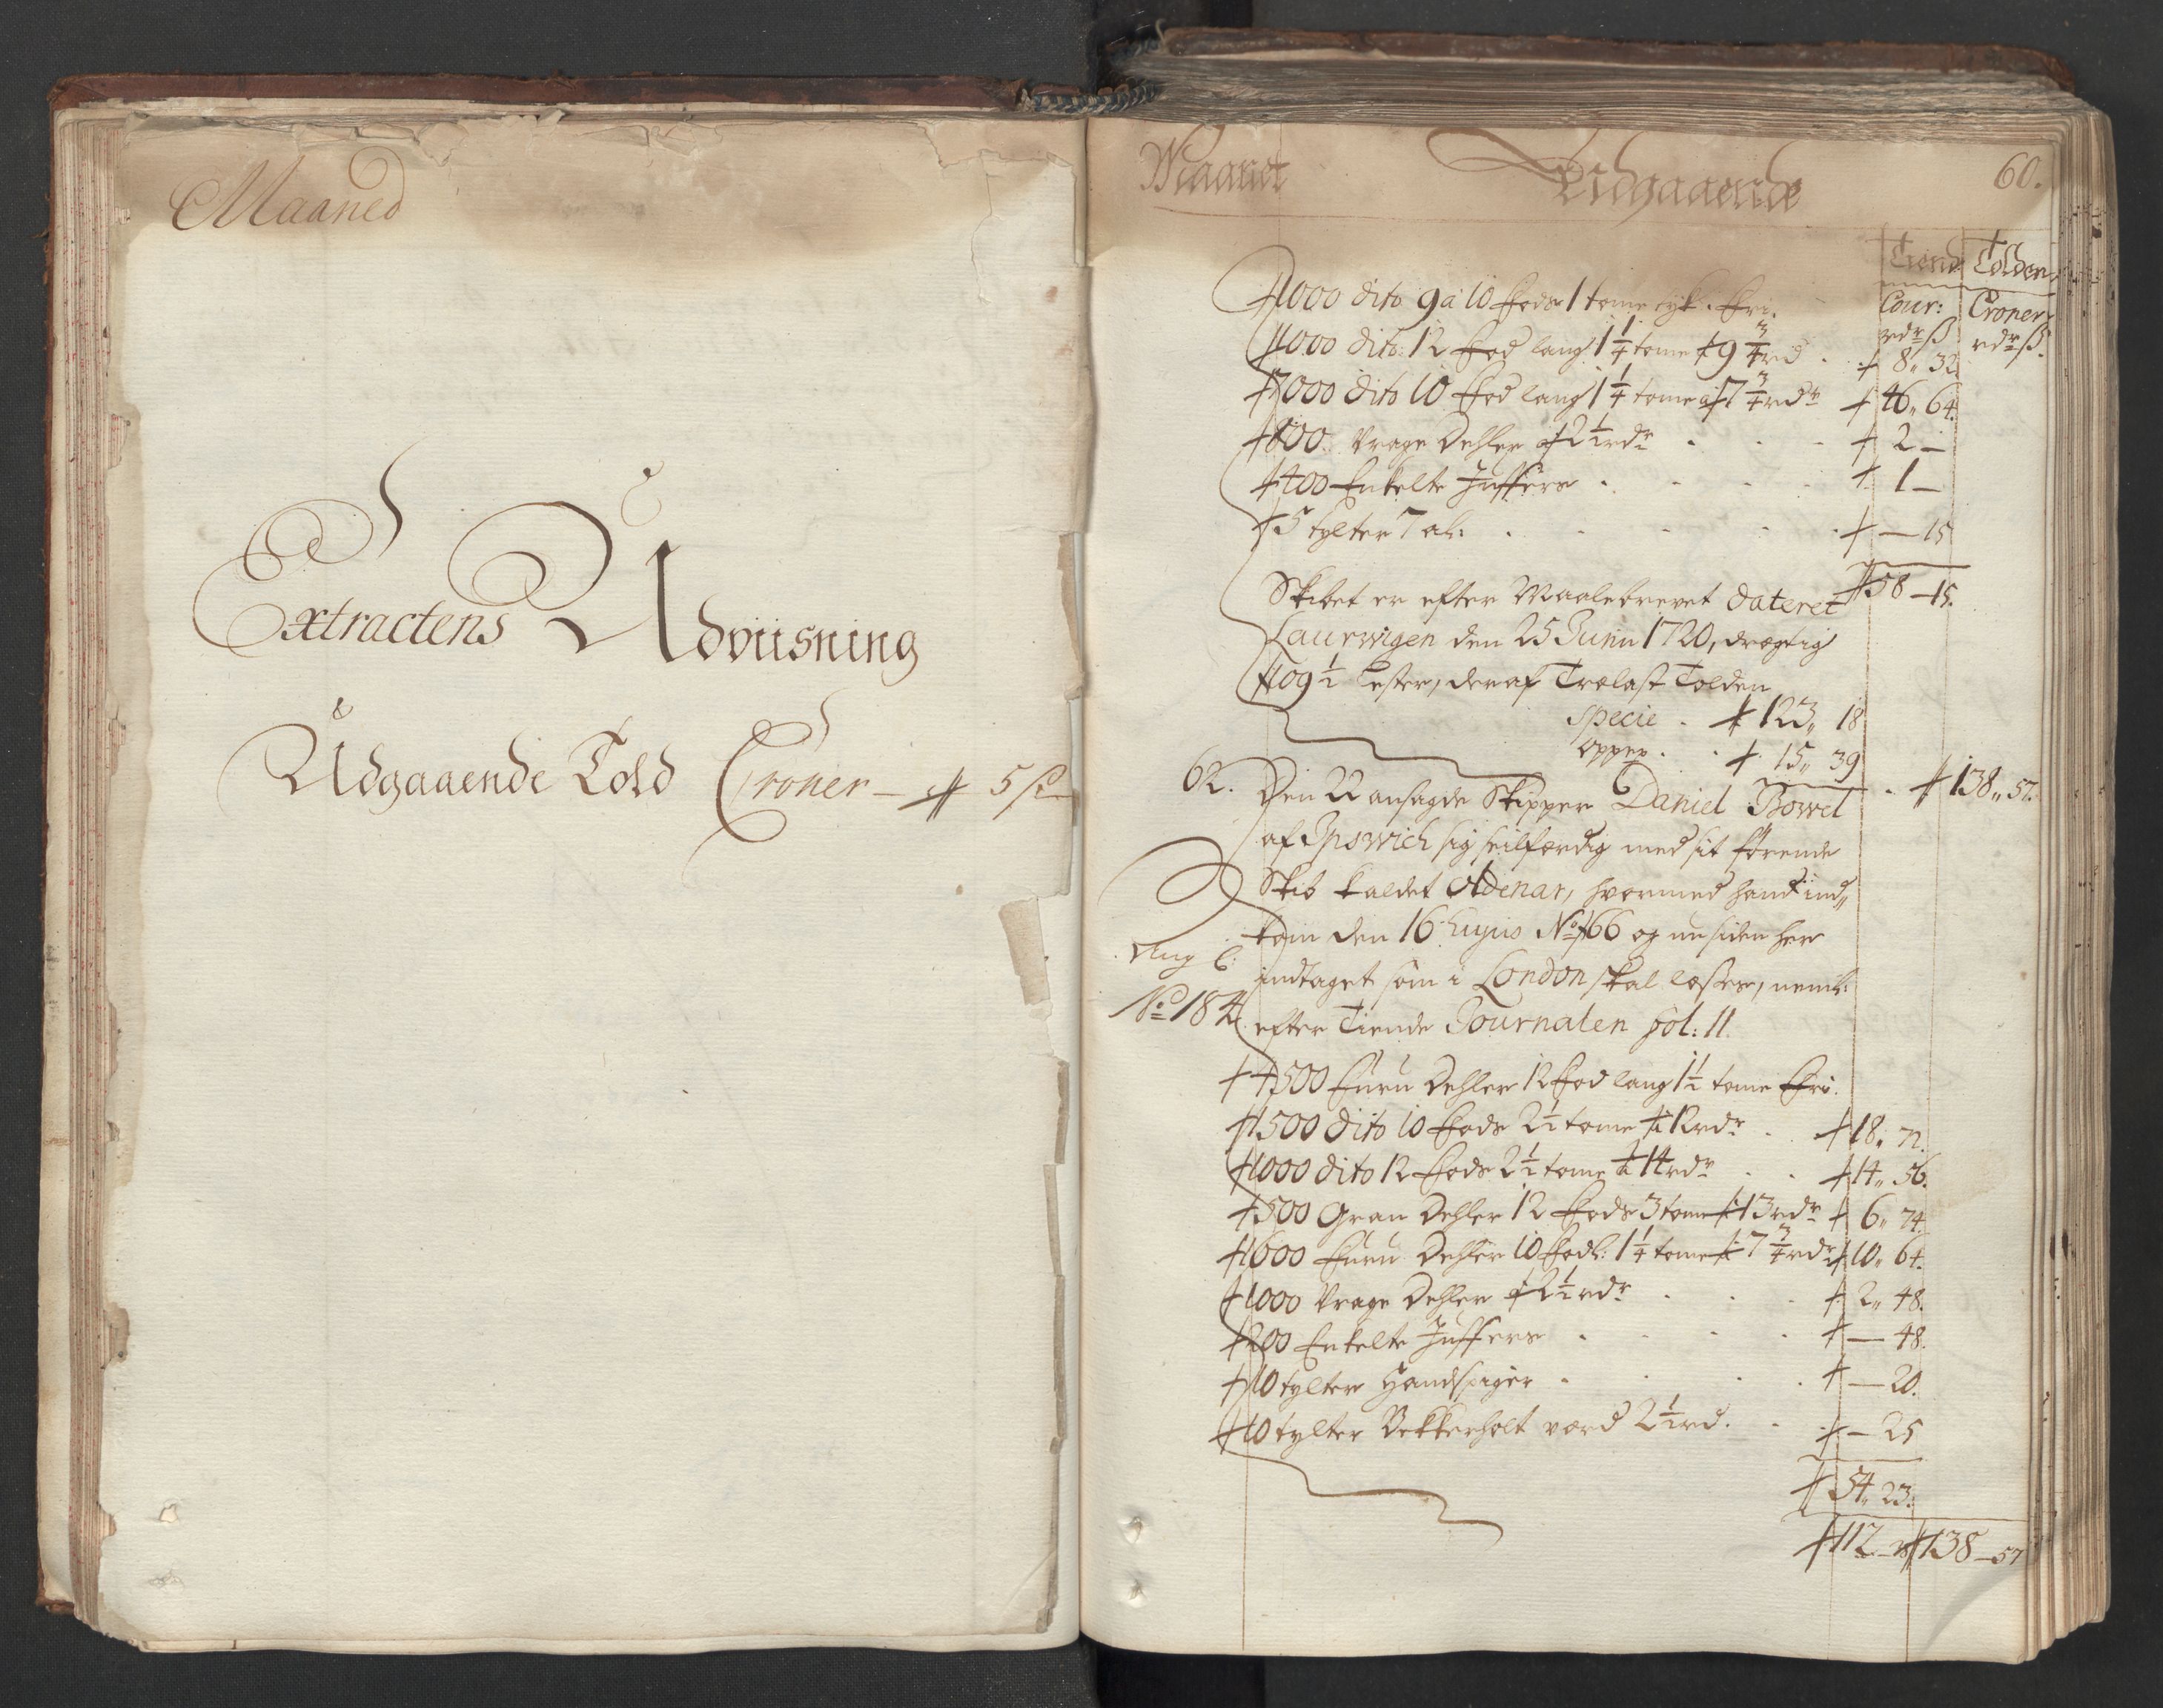 Maaned
Extractens Udviisning
Udgaaende Told Croner – 5 ß
Maanet Udgaaende 60.
Tiend Tolden
Cour: Croner
rdr ß rdr ß.
1000 dito 9 a 10 Fods 1 tome tyk: Fri.
1000 dito: 12 Fod lang 1 1/4 tome a 9 3/4 rd . 8„ 32
7000 dito 10 Fod lang 1 1/4 tome a 7 3/4 rdr 46„ 64.
800 Vrage Dehler a 2 1/2 rdr . . . 2 –
400 Enkelte Juffers . . . . 1 –
5 tylter 7 al: . . . . – 15
58 – 15.
Skibet er efter Maalebrevet dateret
Laurwigen den 25 Junii 1720, drægtig
109 1/2 Lester, deraf Trælast Tolden
Specie . 123„ 18
Opper . . 15„ 39
. 138„ 57.
62. Den 22 ansagde Skipper Daniel Bowel
af Ipswich sig seilfærdig med sit førende
Skib kaldet Adenar, hvormed hand ind„
kom den 16 hujus No 166 og nu siden her
Ang C: indtaget som i London skal losses, neml:
No 184. efter Tiende Journalen fol: 11.
4500 Furu Dehler 12 Fod lang 1 1/2 tome Fri.
1500 dito 10 Fods 2 1/2 tome a 12 rdr . 18„ 72.
1000 dito 12 Fods 2 1/2 tome a 14 rdr . . 14„ 56.
500 Gran Dehler 12 Fods 3 tome a 13 rdr 6„ 74
1600 Furu Dehler 10 Fod l: 1 1/4 tome a 7 3/4 rdr 10„ 64.
1000 Vrage Dehler a 2 1/2 rdr . . . 2„ 48.
200 Enkelte Juffers . . . . – 48.
10 tylter Handspiger . . . . – 20.
10 tylter Bekkerholt værd 2 1/2 rd. . – 25
54„ 23.
112 – 38 138 – 57